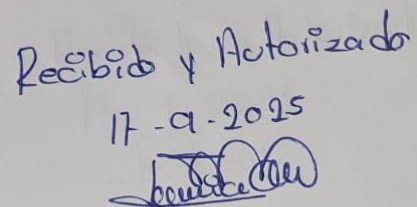 Recibido y Autorizado
17-9-2025